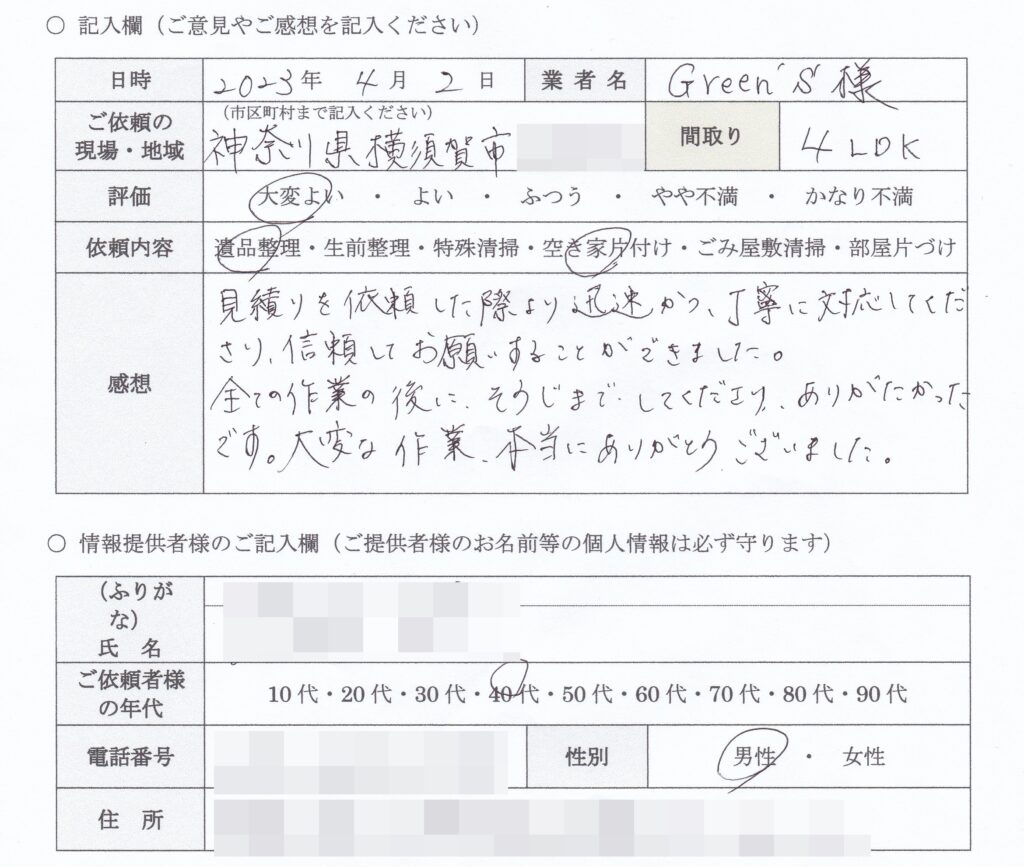 ○ 記入欄（ご意見やご感想を記入ください）
日時 2023年 4月 2日 業者名 Green's様
ご依頼の現場・地域 （市区町村まで記入ください） 神奈川県横須賀市 間取り 4LDK
評価 大変よい ・ よい ・ ふつう ・ やや不満 ・ かなり不満
依頼内容 遺品整理・生前整理・特殊清掃・空き家片付け・ごみ屋敷清掃・部屋片づけ
感想
見積りを依頼した際より迅速かつ、丁寧に対応してくだ
さり、信頼してお願いすることができました。
全ての作業の後に、そうじまでしてくださり、ありがたかった
です。大変な作業、本当にありがとうございました。
○ 情報提供者様のご記入欄（ご提供者様のお名前等の個人情報は必ず守ります）
（ふりが
な）
氏 名
ご依頼者様
の年代 10代・20代・30代・40代・50代・60代・70代・80代・90代
電話番号 性別 男性 ・ 女性
住 所